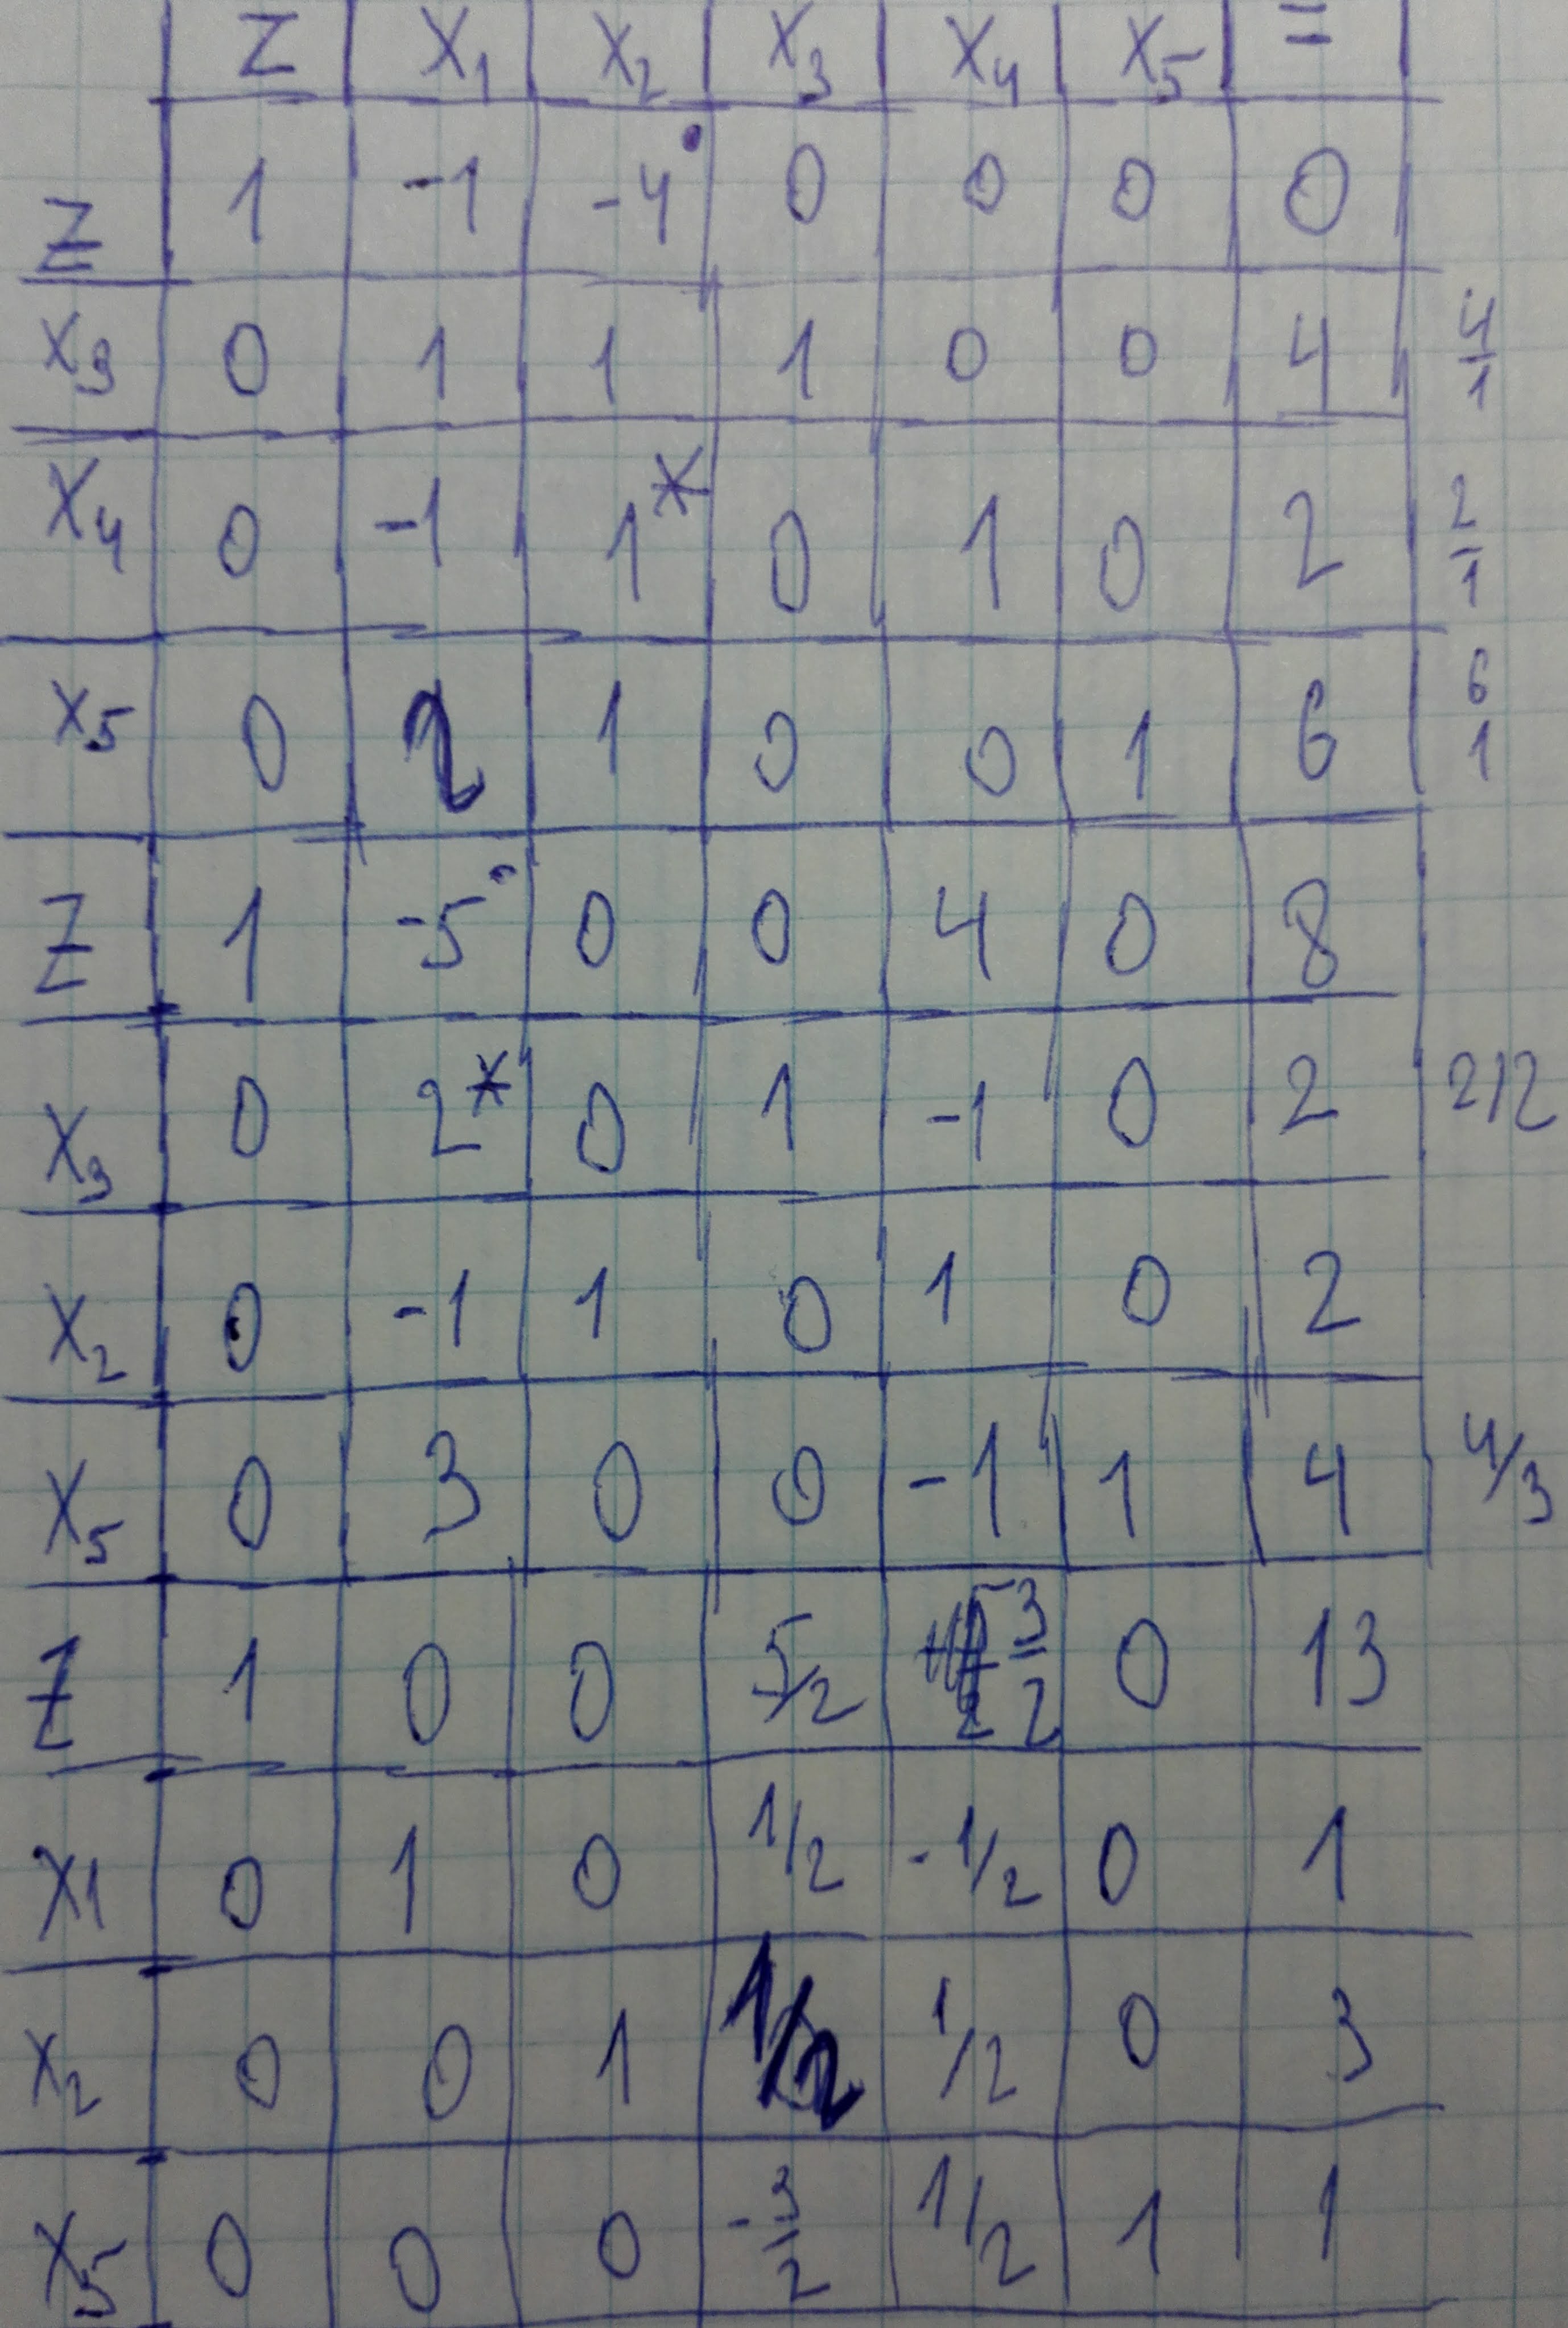 Z X₁ X₂ X₃ X₄ X₅ =
Z 1 -1 -4• 0 0 0 0
X₃ 0 1 1 1 0 0 4 4/1
X₄ 0 -1 1* 0 1 0 2 2/1
X₅ 0 2 1 0 0 1 6 6 1
Z 1 -5• 0 0 4 0 8
X₃ 0 2* 0 1 -1 0 2 2/2
X₂ 0 -1 1 0 1 0 2
X₅ 0 3 0 0 -1 1 4 4/3
Z 1 0 0 5/2 3/2 0 13
X1 0 1 0 1/2 -1/2 0 1
X₂ 0 0 1 1/2 1/2 0 3
X₅ 0 0 0 -3/2 1/2 1 1